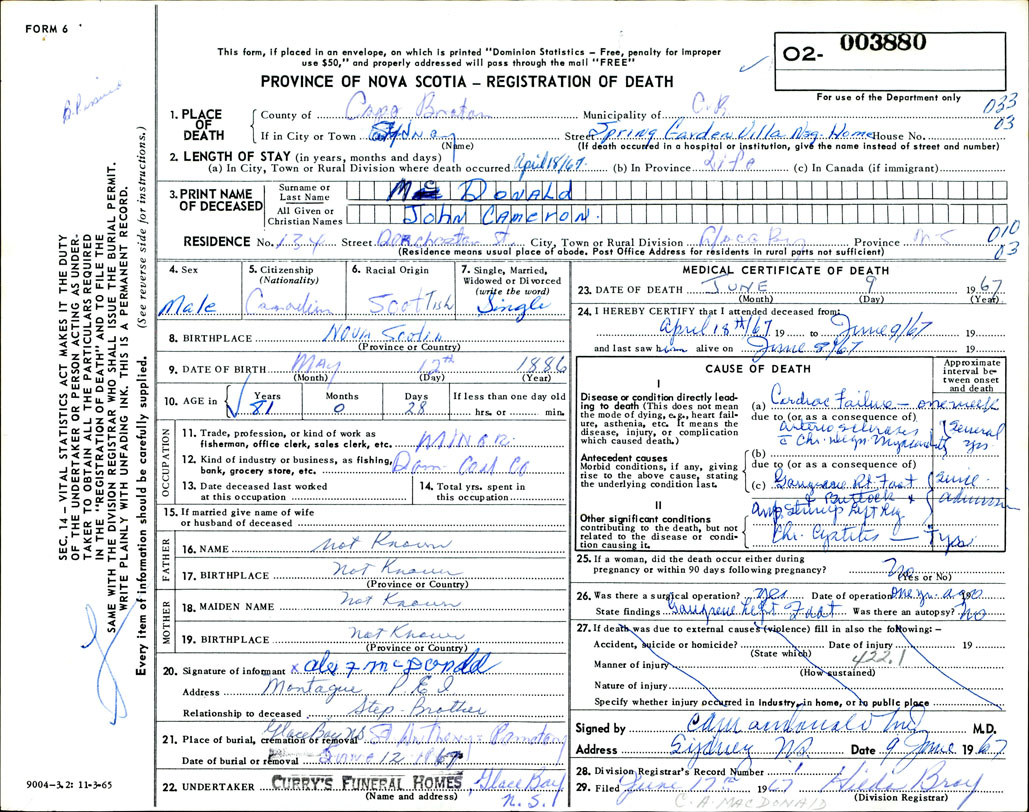 FORM 6
This form, if placed in an envelope, on which is printed "Dominion Statistics – Free, penalty for improper
use $50," and properly addressed will pass through the mail "FREE"
PROVINCE OF NOVA SCOTIA – REGISTRATION OF DEATH
O2- 003880
For use of the Department only
033
03
1. PLACE OF DEATH
County of Cape Breton Municipality of C.B.
If in City or Town Sydney Street Spring Garden Villa Nsg. Home House No.
(Name) (If death occurred in a hospital or institution, give the name instead of street and number)
2. LENGTH OF STAY (in years, months and days)
(a) In City, Town or Rural Division where death occurred April 18/67 (b) In Province Life (c) In Canada (if immigrant)
3. PRINT NAME OF DECEASED
Surname or Last Name Mac DONALD
All Given or Christian Names JOHN CAMERON.
010
03
RESIDENCE No. 134 Street Dorchester St. City, Town or Rural Division Glace Bay Province N S
(Residence means usual place of abode. Post Office Address for residents in rural parts not sufficient)
4. Sex Male
5. Citizenship (Nationality) Canadian
6. Racial Origin Scottish
7. Single, Married, Widowed or Divorced (write the word) Single
8. BIRTHPLACE Nova Scotia
(Province or Country)
9. DATE OF BIRTH May 12th 1886
(Month) (Day) (Year)
10. AGE in Years 81 Months 0 Days 28 If less than one day old hrs. or min.
OCCUPATION
11. Trade, profession, or kind of work as
fisherman, office clerk, sales clerk, etc. MINER.
12. Kind of industry or business, as fishing,
bank, grocery store, etc. Dom. Coal Co
13. Date deceased last worked
at this occupation
14. Total yrs. spent in
this occupation
15. If married give name of wife
or husband of deceased
FATHER
16. NAME not Known
17. BIRTHPLACE Not Known
(Province or Country)
MOTHER
18. MAIDEN NAME Not Known
19. BIRTHPLACE Not Known
(Province or Country)
20. Signature of informant x Alex J McDonald
Address Montague P E I
Relationship to deceased Step-Brother
21. Place of burial, cremation or removal Glace Bay NS St Anthony
Date of burial or removal June 12 1967
22. UNDERTAKER CURRY'S FUNERAL HOMES, Glace Bay
N.S.
(Name and address)
MEDICAL CERTIFICATE OF DEATH
23. DATE OF DEATH JUNE 9 1967
(Month) (Day) (Year)
24. I HEREBY CERTIFY that I attended deceased from:
April 18th/67 19 to June 9/67 19
and last saw him alive on June 8/67 19
CAUSE OF DEATH
Approximate interval between onset and death
I
Disease or condition directly leading to death (This does not mean the mode of dying, e.g., heart failure, asthenia, etc. It means the disease, injury, or complication which caused death.)
(a) Cardiac Failure – one week
due to (or as a consequence of)
Arterio sclerosis Several
c Chr. degn Myocardit yrs
Antecedent causes
Morbid conditions, if any, giving rise to the above cause, stating the underlying condition last.
(b)
due to (or as a consequence of)
(c) Gangrene Rt Foot since
& Buttock & admission
II
Amp. stump Left Leg
Other significant conditions contributing to the death, but not related to the disease or condition causing it.
Chr. Cystitis – yrs
25. If a woman, did the death occur either during
pregnancy or within 90 days following pregnancy? No
(Yes or No)
26. Was there a surgical operation? yes Date of operation one yr. ago 19
State findings Gangrene Left Foot Was there an autopsy? No
27. If death was due to external causes (violence) fill in also the following:–
Accident, suicide or homicide? Date of injury 19
(State which) 422.1
Manner of injury
(How sustained)
Nature of injury
Specify whether injury occurred in Industry, in home, or in public place
Signed by M.D.
Address Sydney NS Date 9 June 1967
28. Division Registrar's Record Number
29. Filed June 17 1967 Hilda Bray
(Division Registrar)
C. A. MACDONALD
SEC. 14 – VITAL STATISTICS ACT MAKES IT THE DUTY
OF THE UNDERTAKER OR PERSON ACTING AS UNDERTAKER
TO OBTAIN ALL THE PARTICULARS REQUIRED
IN THE "REGISTRATION OF DEATH" AND TO FILE THE
SAME WITH THE DIVISION REGISTRAR WHO SHALL ISSUE THE BURIAL PERMIT.
WRITE PLAINLY WITH UNFADING INK. THIS IS A PERMANENT RECORD.
Every item of information should be carefully supplied. (See reverse side for instructions.)
9004-3.2: 11-3-65